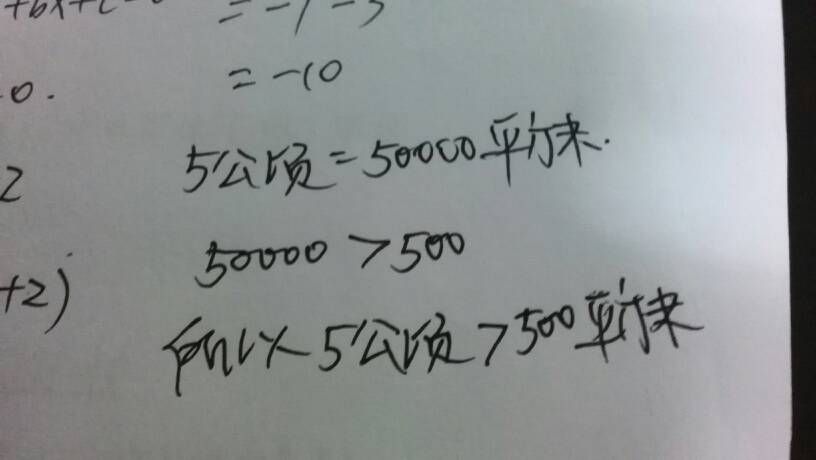 = -7 - 3
= -10
0.
5公顷 = 50000平方米.
2
50000 > 500
+2)
所以 5公顷 > 500平方米